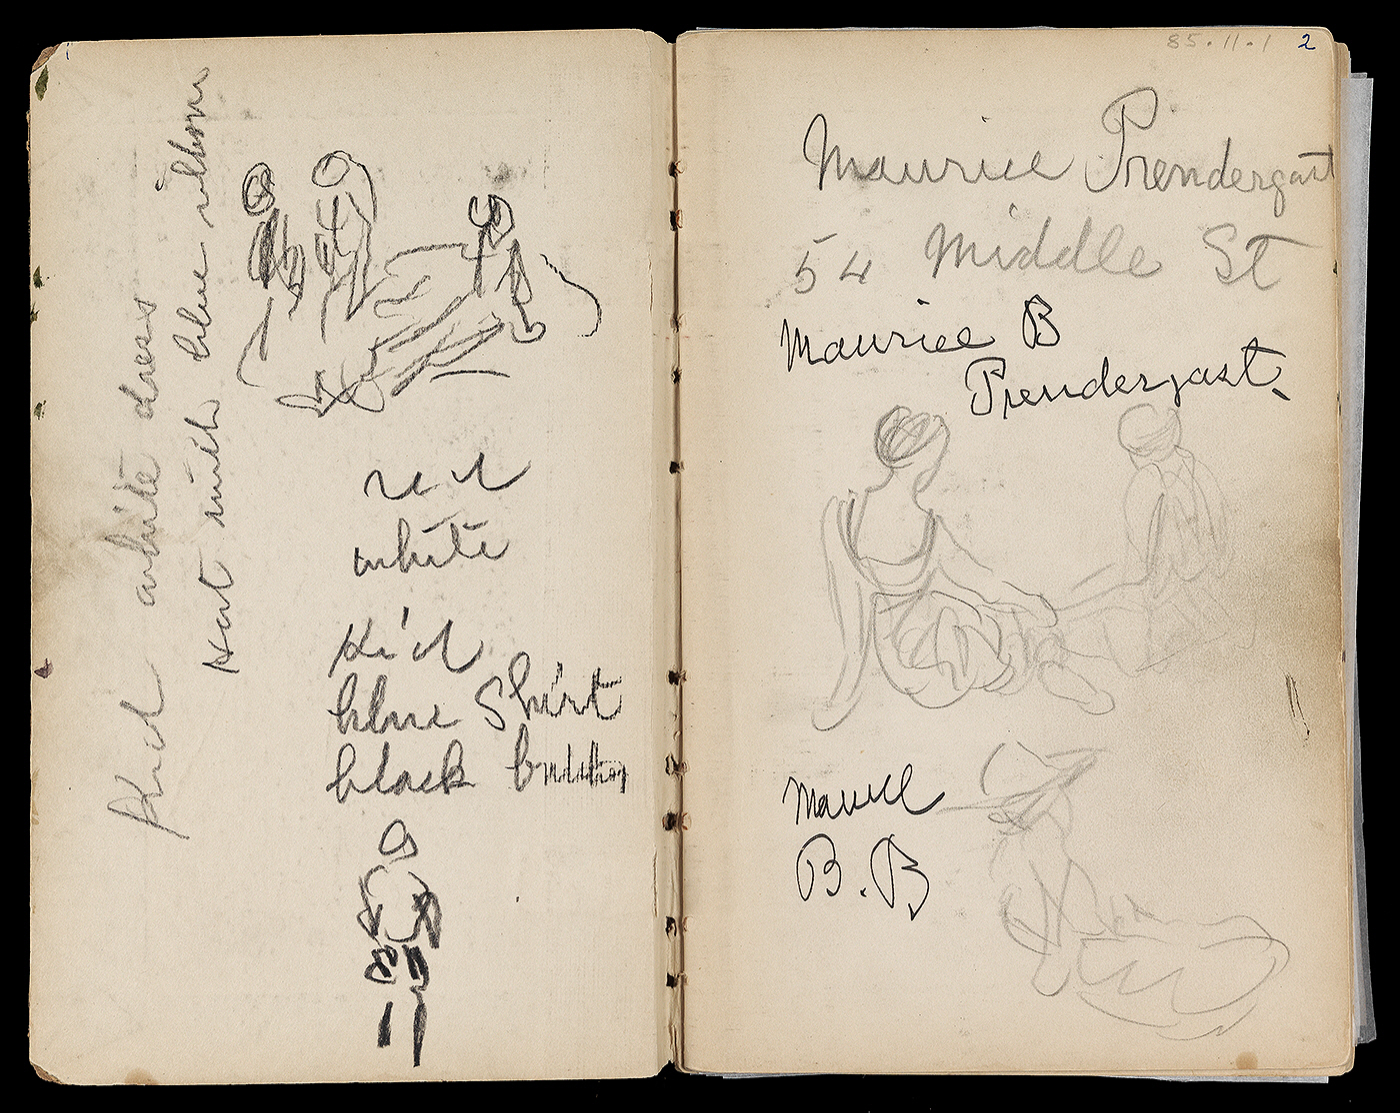 Kid white dress
Hat with blue ribbon
red
white
Kid
blue Shirt
black
85.11.1 2
Maurice Prendergast
54 Middle St
Maurice B
Prendergast.
B.B